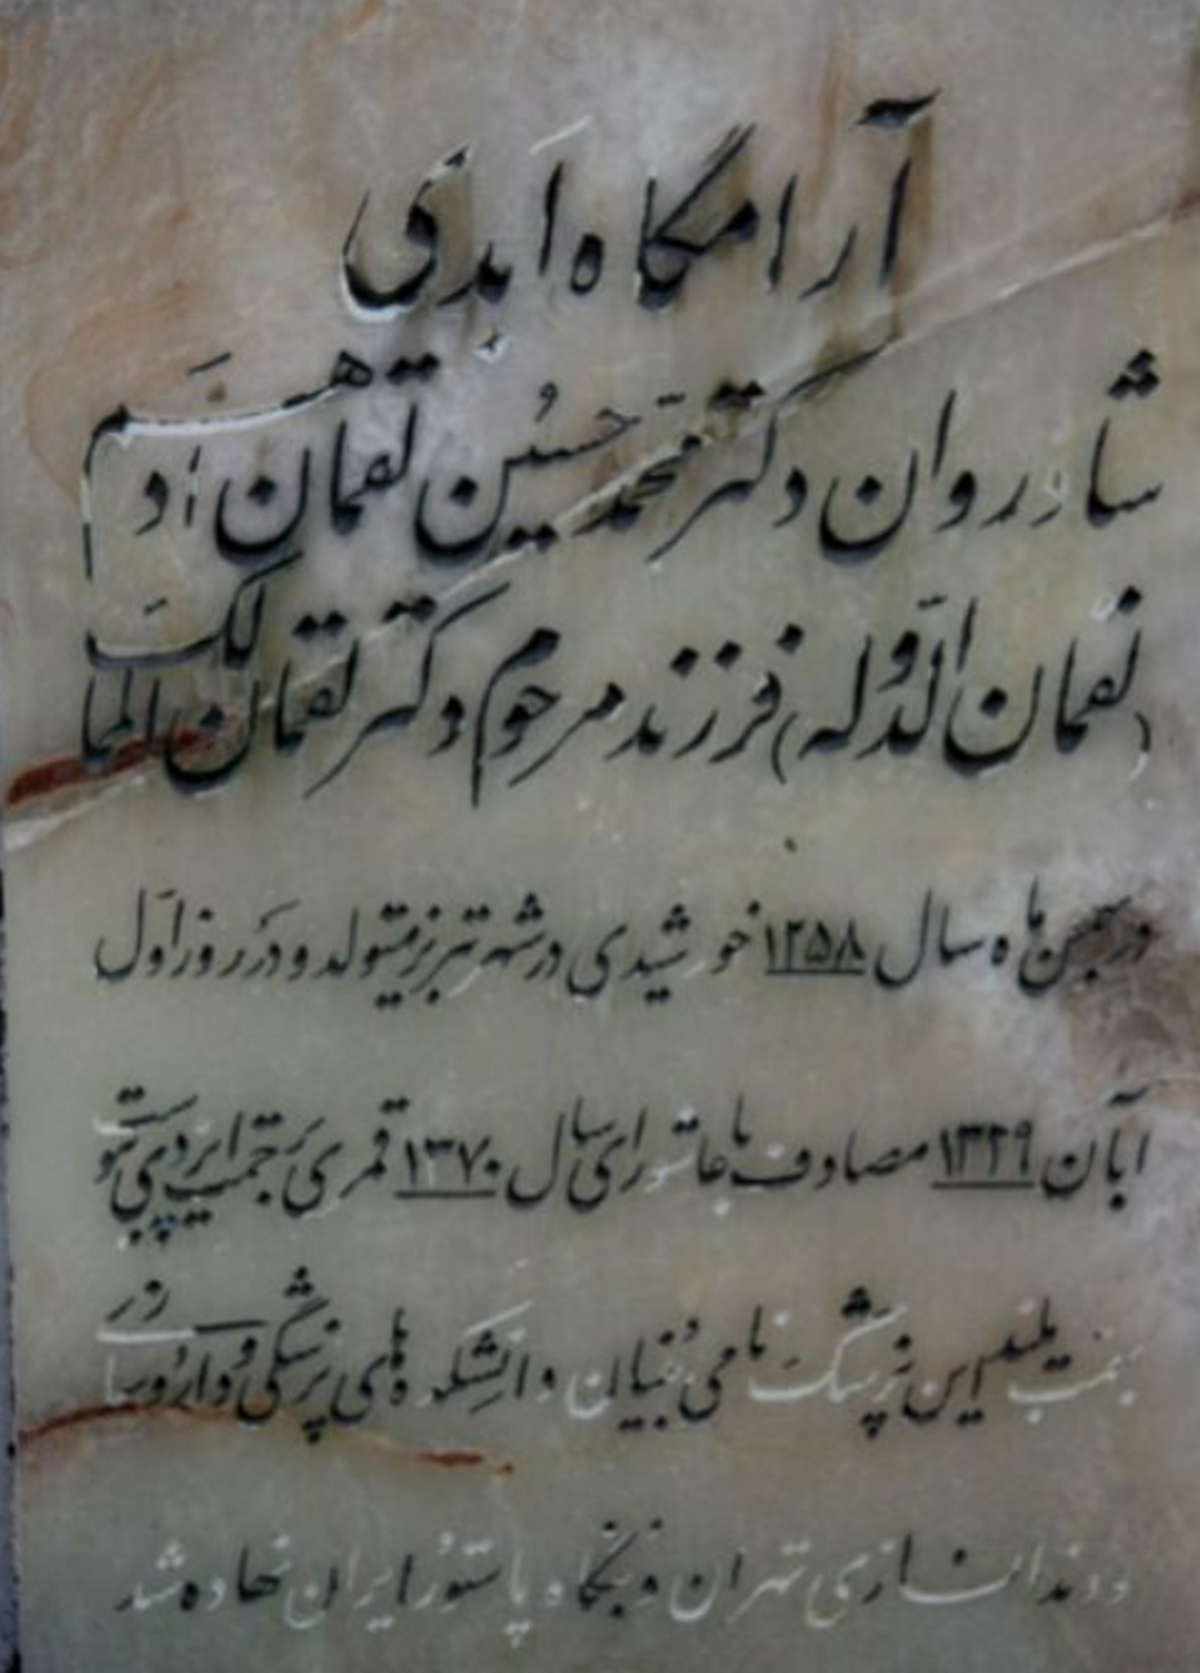 آرامگاه اَبدی
شادروان دکتر محمد حسین لقمان ادهم
(لقمان الدّوله) فرزند مرحوم دکتر لقمان الممالک
در بهمن ماه سال ۱۲۵۸ خورشیدی در شهر تبریز متولد و در روز اوّل
آبان ۱۳۲۹ مصادف با عاشورای سال ۱۳۷۰ قمری برحمت ایزدی پیوست
بهمت بلند این پزشک نامی بُنیان دانشکده های پزشکی و داروسازی
و دندانسازی تهران و بنگاه پاستور ایران نهاده شد